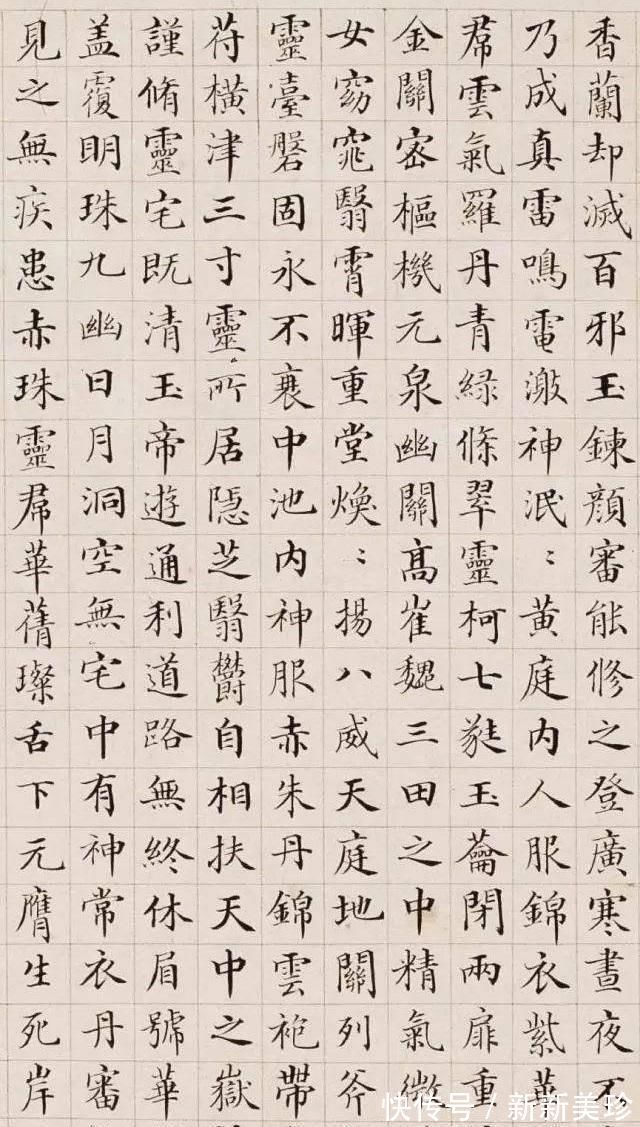 香蘭却滅百邪玉鍊顔審能修之登廣寒晝夜不
乃成真雷鳴電激神泯〻黄庭内人服錦衣紫華
帬雲氣羅丹青緑條翠靈柯七蕤玉蘥閉兩扉重
金關密樞機元泉幽關髙崔巍三田之中精氣微
女窈窕翳霄暉重堂煥〻揚八威天庭地關列斧
靈臺磐固永不衰中池内神服赤朱丹錦雲袍帶
苻橫津三寸靈所居隱芝翳鬱自相扶天中之嶽
謹脩靈宅既清玉帝遊通利道路無終休眉號華
盖覆明珠九幽日月洞空無宅中有神常衣丹審
見之無疾患赤珠靈帬華蒨璨舌下元膺生死岸
快传号 / 新新美珍